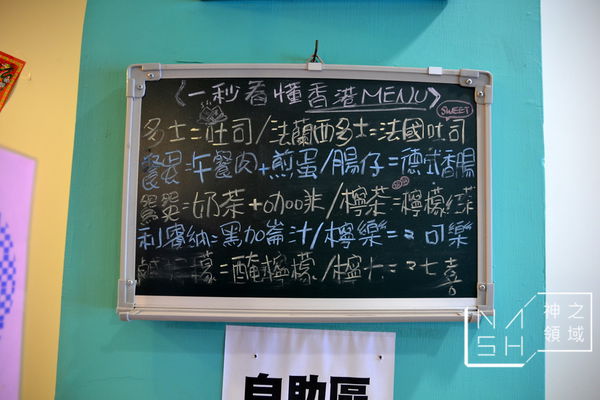 《一秒看懂香港MENU》
SWEET
多士=吐司/法蘭西多士=法國吐司
餐蛋=午餐肉+煎蛋/腸仔=德式香腸
鴛鴦=奶茶+咖啡/檸茶=檸檬紅茶
利賓納=黑加崙汁/檸樂=可樂
檸檬=醃檸檬/檸七=七喜
自助區
NASH
神之領域